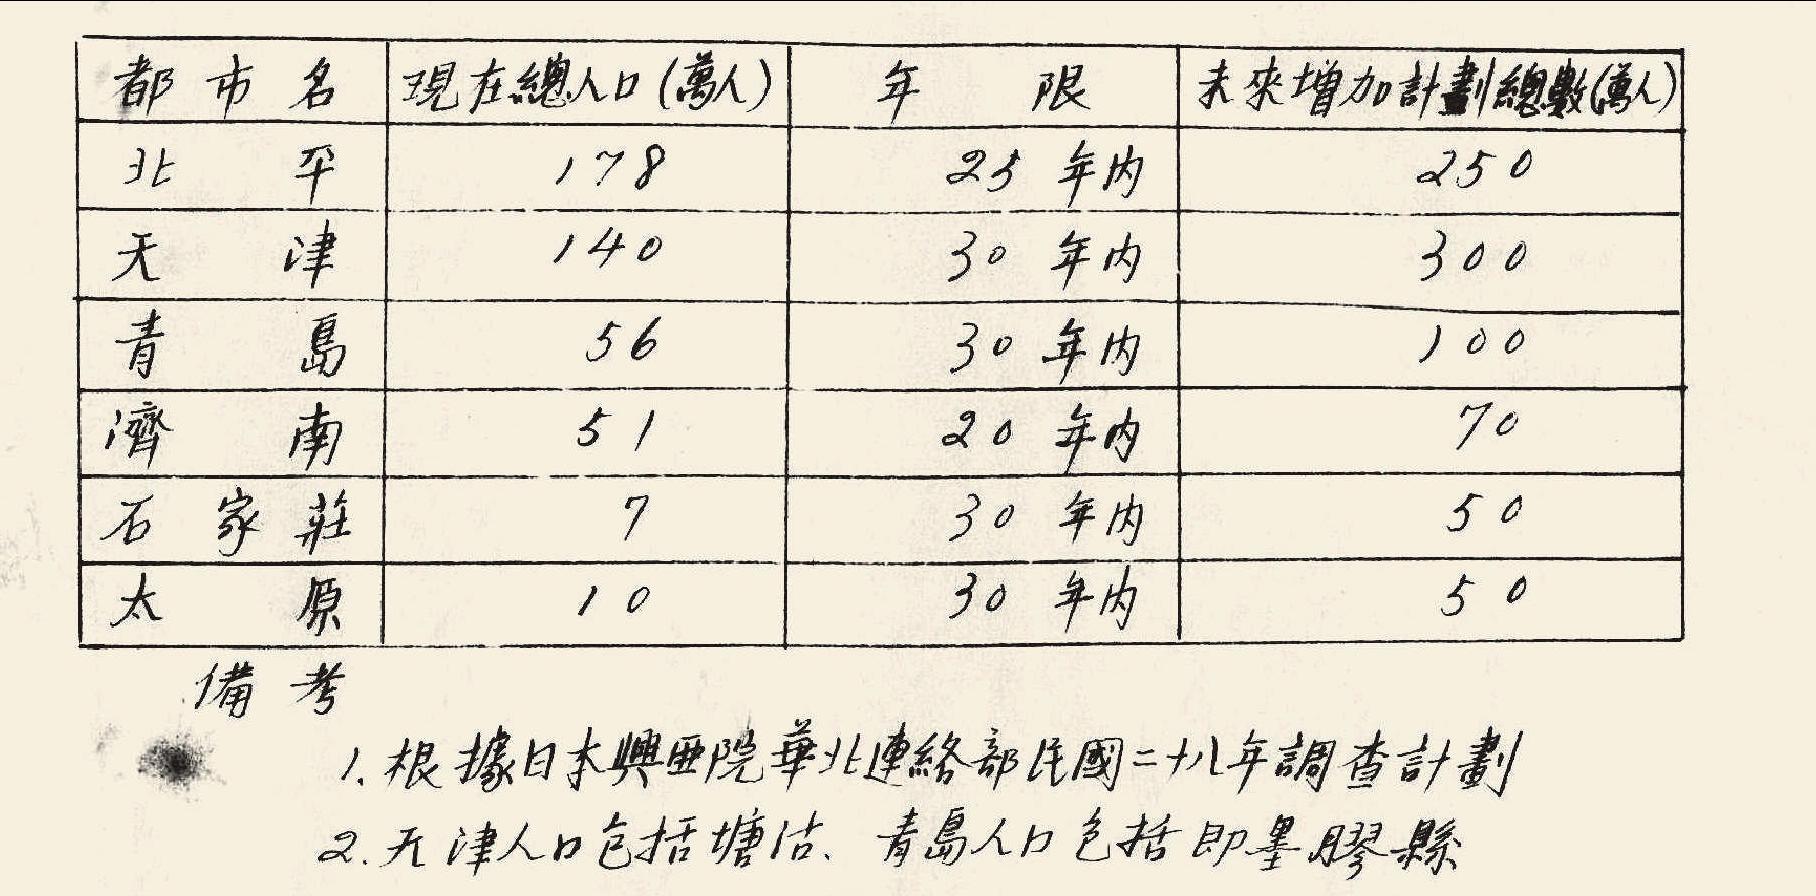 都市名 現在總人口(萬人) 年限 未來增加計劃總數(萬人)
北平 178 25年內 250
天津 140 30年內 300
青島 56 30年內 100
濟南 51 20年內 70
石家莊 7 30年內 50
太原 10 30年內 50
備考
1. 根據日本興亜院華北連絡部民國二十八年調查計劃
2. 天津人口包括塘沽、青島人口包括即墨膠縣